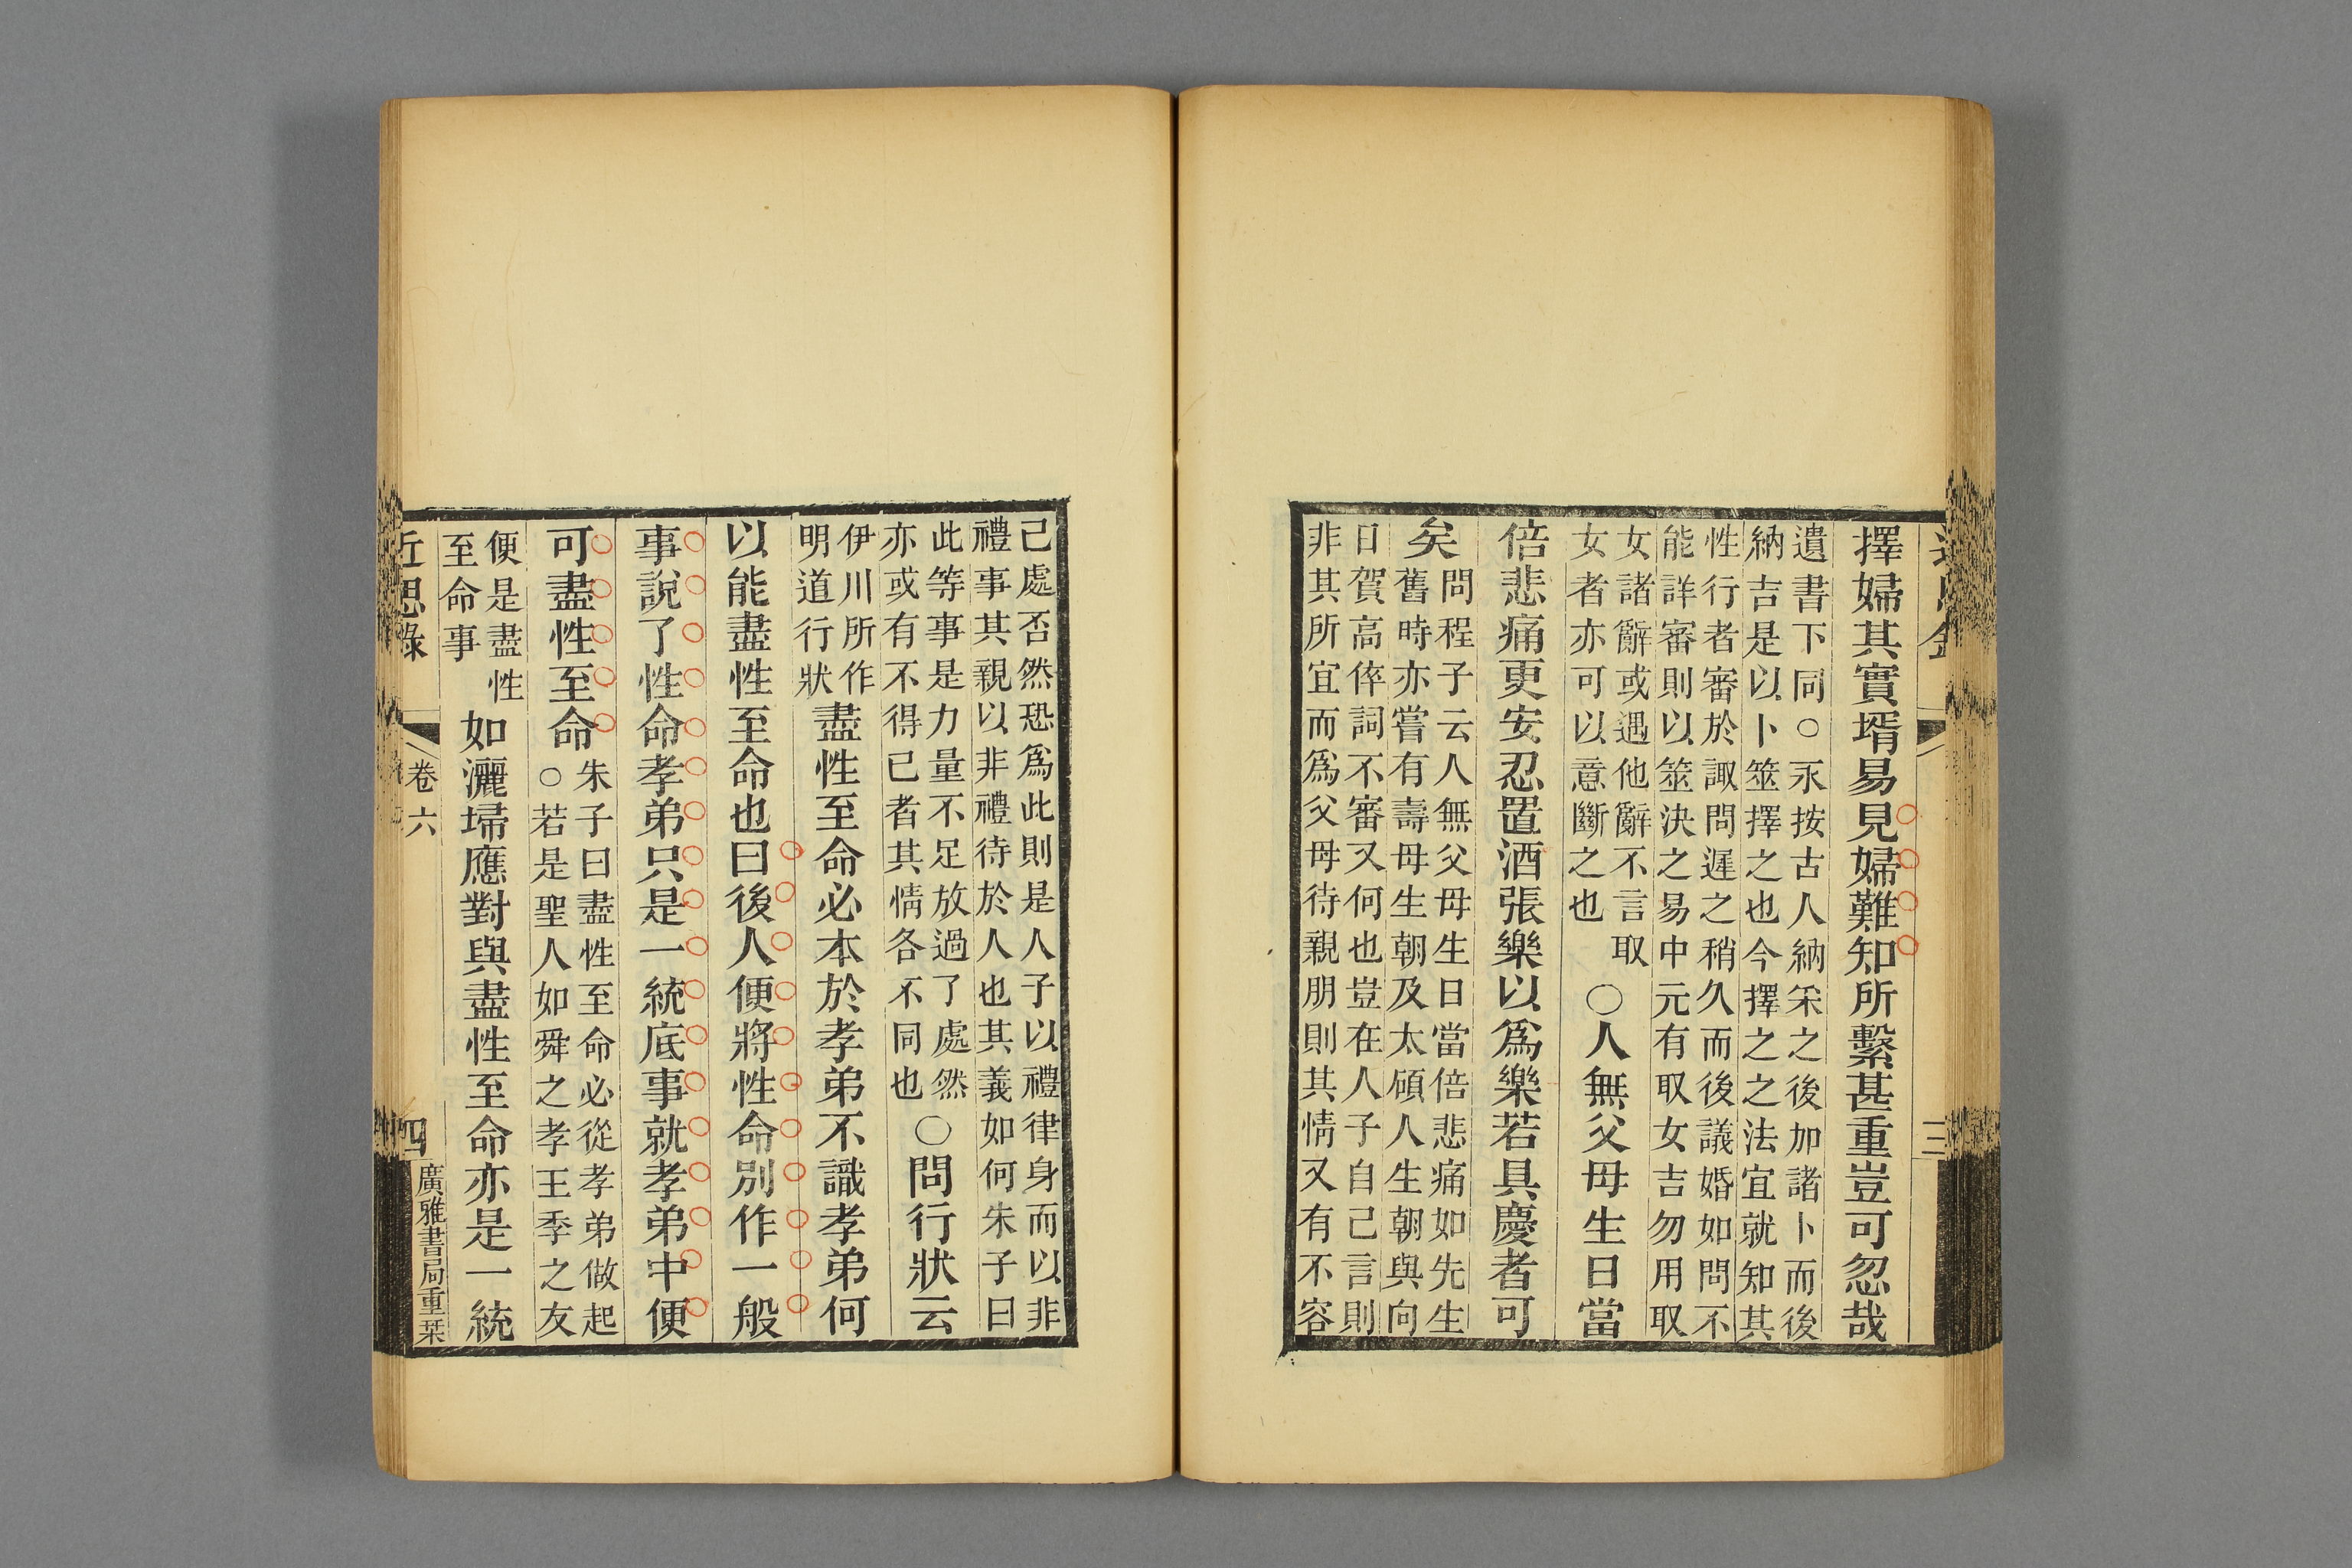 擇婦其實壻易見婦難知所繫甚重豈可忽哉
遺書下同○永按古人納采之後加諸卜而後
納吉是以卜筮擇之也今擇之之法宜就知其
性行者審於諏問遲之稍久而後議婚如問不
能詳審則以筮決之易中元有取女吉勿用取
女諸辭或遇他辭不言取
女者亦可以意斷之也
○人無父母生日當
倍悲痛更安忍置酒張樂以爲樂若具慶者可
矣
問程子云人無父母生日當倍悲痛如先生
舊時亦嘗有壽母生朝及太碩人生朝與向
日賀高倅詞不審又何也豈在人子自己言則
非其所宜而爲父母待親朋則其情又有不容
三
己處否然恐爲此則是人子以禮律身而以非
禮事其親以非禮待於人也其義如何朱子曰
此等事是力量不足放過了處然
亦或有不得已者其情各不同也
○問行狀云
伊川所作
明道行狀
盡性至命必本於孝弟不識孝弟何
以能盡性至命也曰後人便將性命別作一般
事說了性命孝弟只是一統底事就孝弟中便
可盡性至命
朱子曰盡性至命必從孝弟做起
○若是聖人如舜之孝王季之友
便是盡性
至命事
如灑埽應對與盡性至命亦是一統
近思錄
卷六
四
廣雅書局重栞